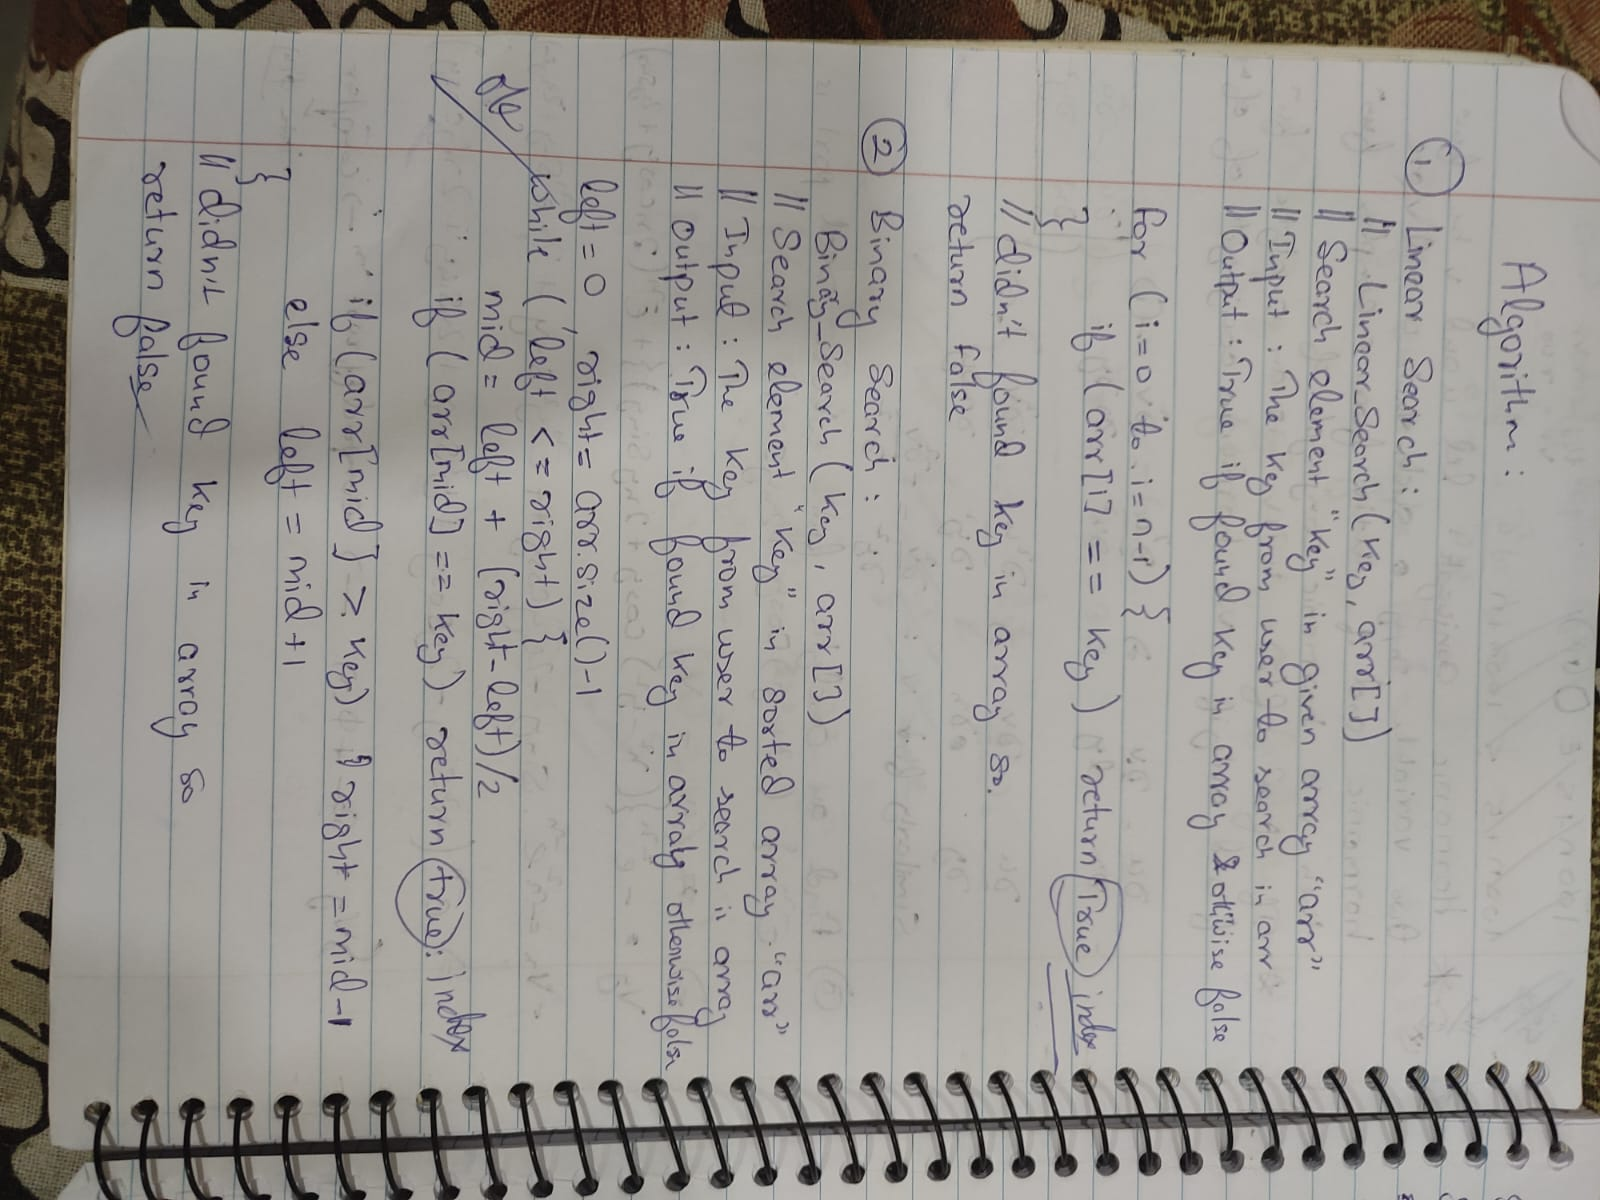 Algorithm :
① Linear Search :
// Linear_Search ( key, arr[] )
// Search element "key" in given array "arr"
// Input : The key from user to search in arr
// Output : True if found key in array otherwise false
for ( i=0 to i=n-1 ) {
if ( arr[i] == key ) return True index
}
// didn't found key in array so.
return false
② Binary Search :
Binary_Search ( key, arr[] )
// Search element "key" in sorted array "arr"
// Input : The key from user to search in array
// Output : True if found key in array otherwise false
left = 0 , right = arr.size()-1
while ( left <= right ) {
mid = left + (right-left)/2
if ( arr[mid] == key ) return true : index
if ( arr[mid] > key ) right = mid-1
else left = mid+1
}
// didn't found key in array so
return false